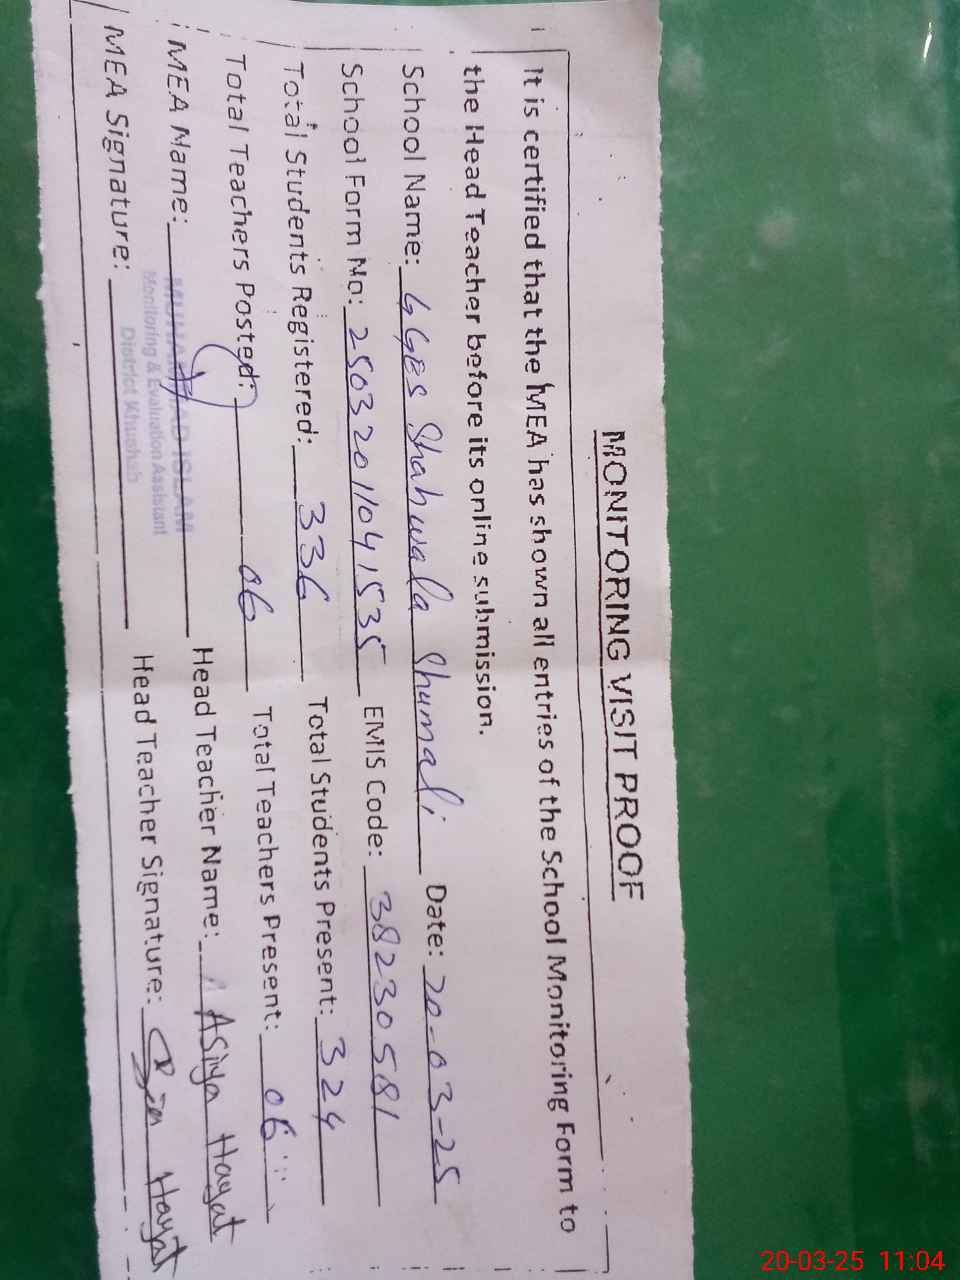 MONITORING VISIT PROOF
It is certified that the MEA has shown all entries of the School Monitoring Form to
the Head Teacher before its online submission.
School Name: GGES Shahwala Shumali Date: 20-03-25
School Form No: 25032011041535 EMIS Code: 38230581
Total Students Registered: 336 Total Students Present: 324
Total Teachers Posted: 06 Total Teachers Present: 06
MEA Name: MUHAMMAD ISLAM Head Teacher Name: Asiya Hayat
Monitoring & Evaluation Assistant
MEA Signature: District Khushab Head Teacher Signature: Hayat
20-03-25 11:04